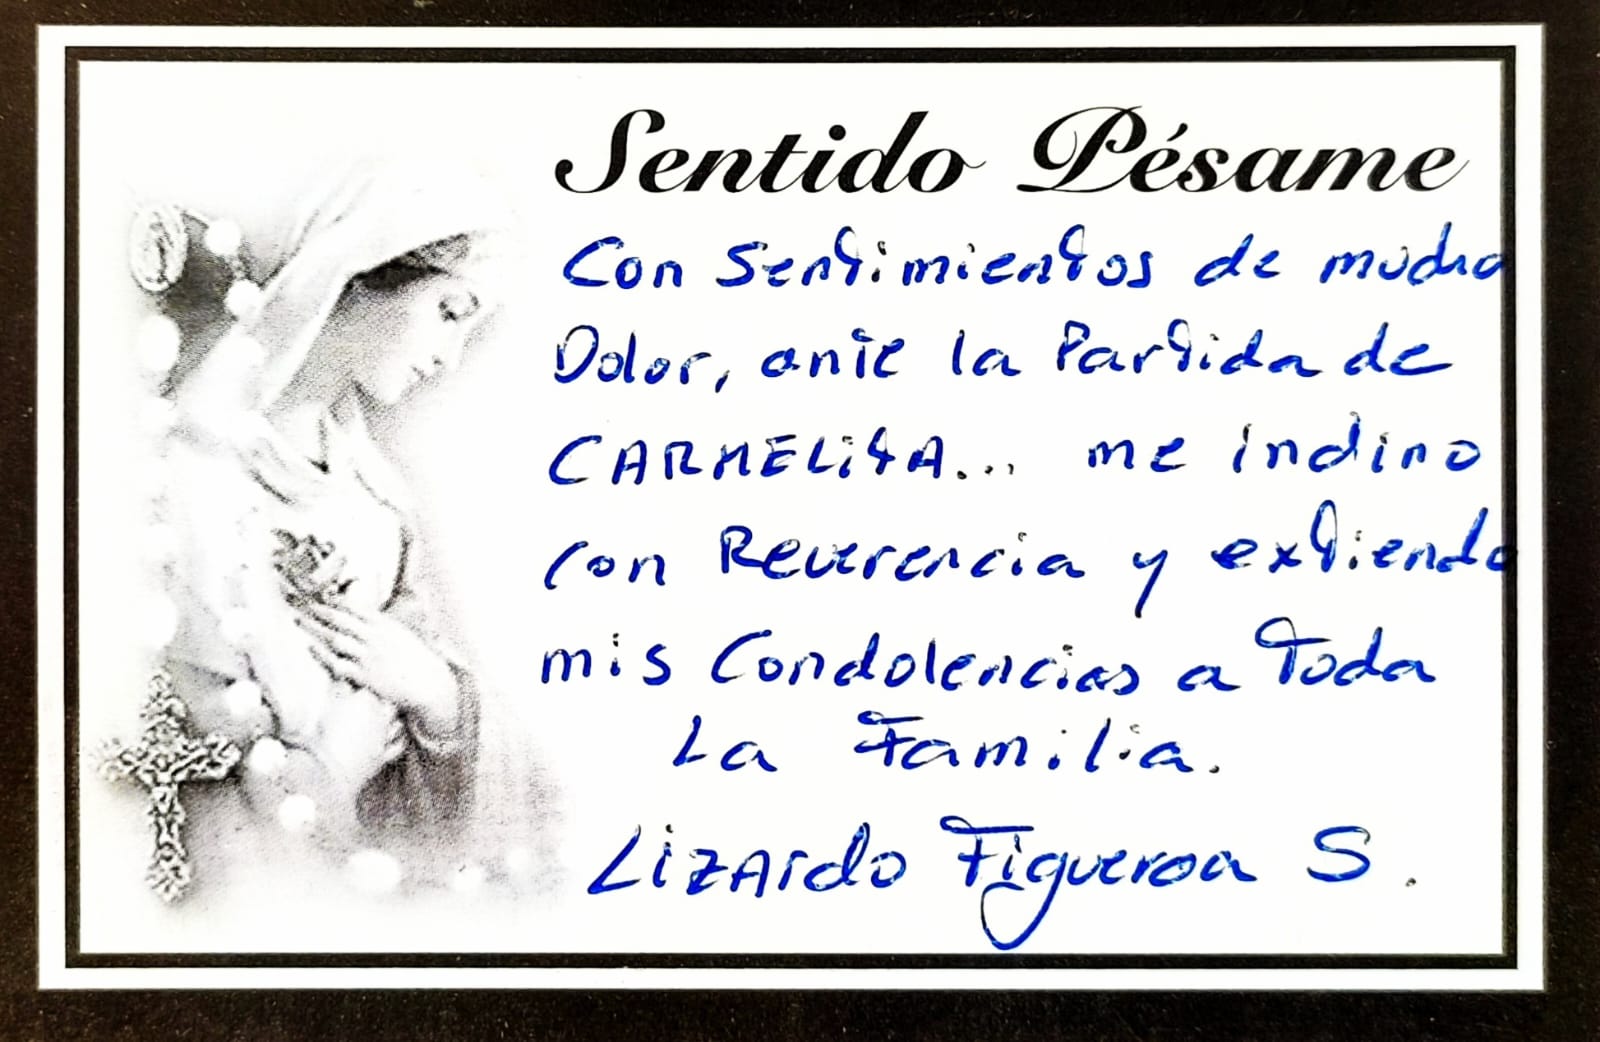 Sentido Pésame
Con Sentimientos de mucho
Dolor, ante la Partida de
CARMELitA... me inclino
con Reverencia y extiendo
mis Condolencias a Toda
La Familia.
LizArdo Figueroa S.